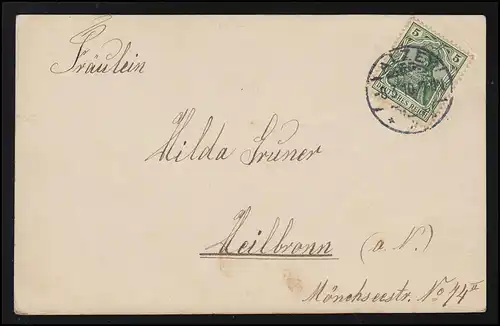 Fräulein
5 5
ALZEY
DEUTSCHES REICH
Hilda Gruner
Heilbronn (a. N.)
Mönchseestr. No 74 II